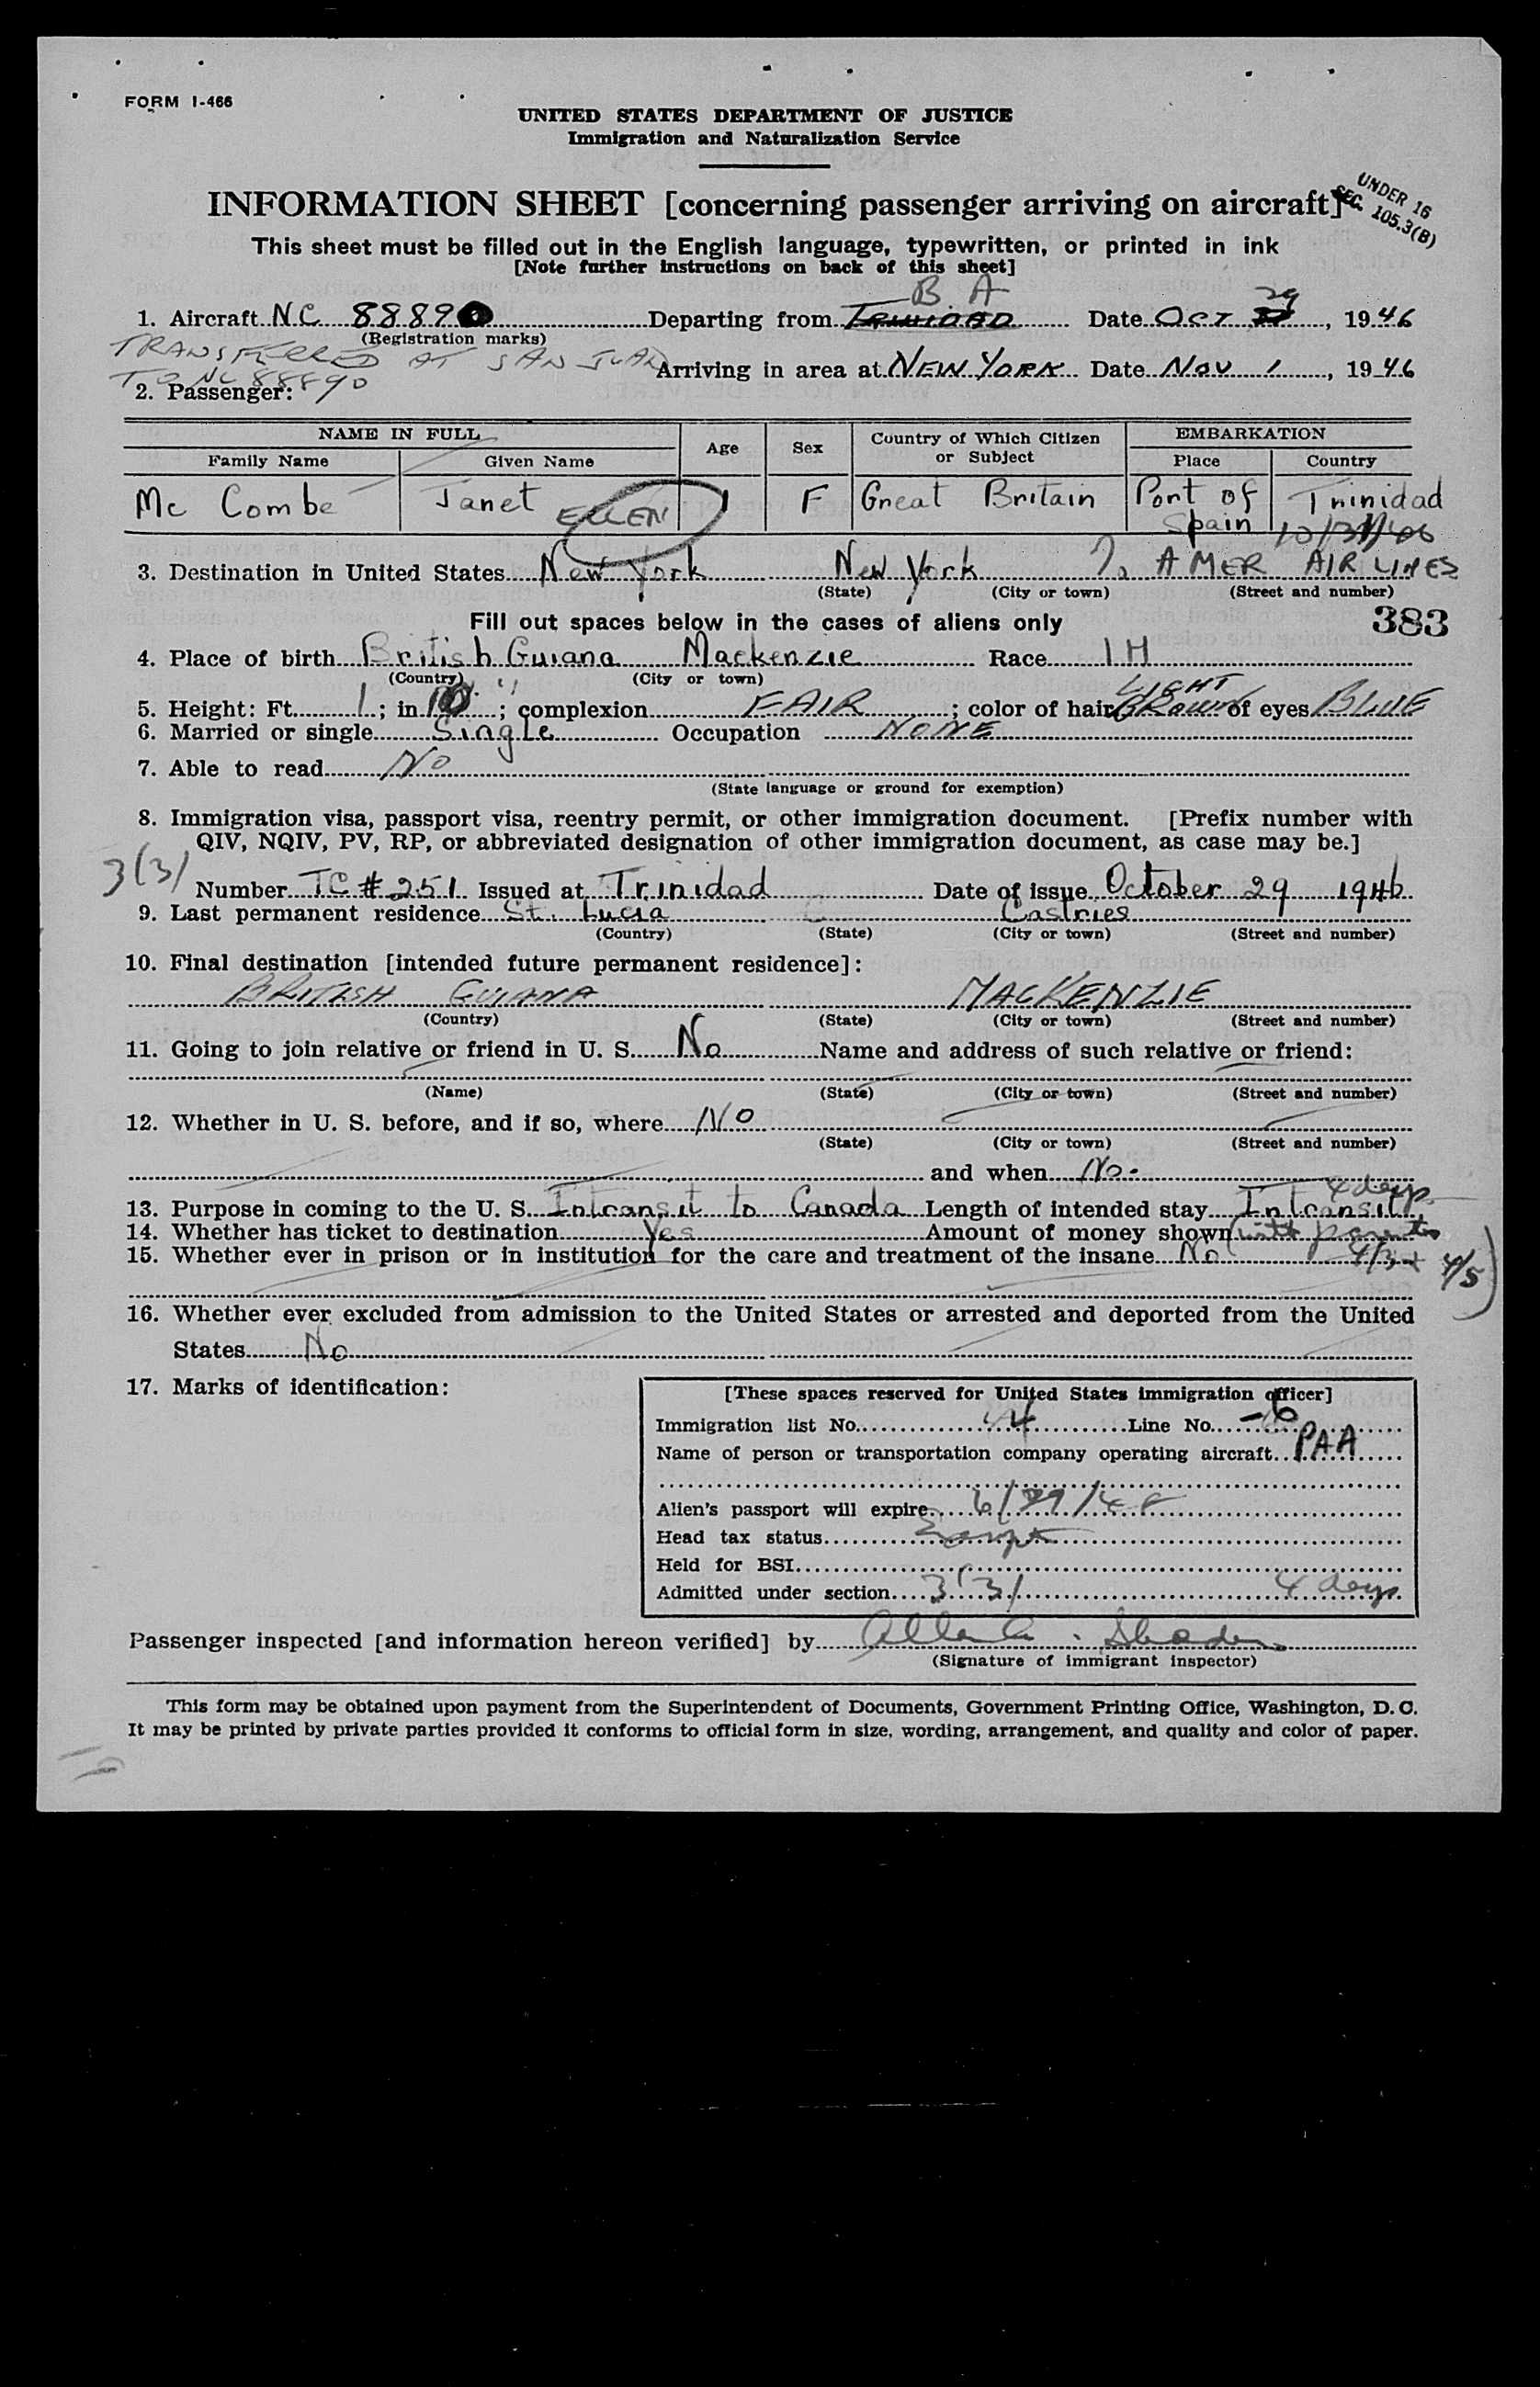 FORM I-466
UNITED STATES DEPARTMENT OF JUSTICE
Immigration and Naturalization Service
INFORMATION SHEET [concerning passenger arriving on aircraft]
UNDER 16
SEC. 105.3(B)
This sheet must be filled out in the English language, typewritten, or printed in ink
[Note further instructions on back of this sheet]
B. A
1. Aircraft NC 88890 Departing from Trinidad Date Oct 29, 1946
(Registration marks)
TRANSFERRED AT SAN JUAN
TO NC 88890
Arriving in area at NEW YORK Date Nov 1, 1946
2. Passenger:
NAME IN FULL Age Sex Country of Which Citizen or Subject EMBARKATION
Family Name Given Name Place Country
Mc Combe Janet ELLEN 1 F Great Britain Port of Spain Trinidad
3. Destination in United States New York New York AMER AIR LINES
(State) (City or town) (Street and number)
Fill out spaces below in the cases of aliens only 383
4. Place of birth British Guiana Mackenzie Race
(Country) (City or town)
5. Height: Ft. 1; in 10; complexion FAIR; color of hair LIGHT Brown of eyes BLUE
6. Married or single Single Occupation NONE
7. Able to read No
(State language or ground for exemption)
8. Immigration visa, passport visa, reentry permit, or other immigration document. [Prefix number with
QIV, NQIV, PV, RP, or abbreviated designation of other immigration document, as case may be.]
3(3)
Number TC # 251 Issued at Trinidad Date of issue October 29 1946
9. Last permanent residence St. Lucia Castries
(Country) (State) (City or town) (Street and number)
10. Final destination [intended future permanent residence]:
BRITISH GUIANA MACKENZIE
(Country) (State) (City or town) (Street and number)
11. Going to join relative or friend in U. S. No Name and address of such relative or friend:
(Name) (State) (City or town) (Street and number)
12. Whether in U. S. before, and if so, where No
(State) (City or town) (Street and number)
and when No.
4 days
13. Purpose in coming to the U. S. Intransit to Canada Length of intended stay Intransit
14. Whether has ticket to destination Yes Amount of money shown (with parents
15. Whether ever in prison or in institution for the care and treatment of the insane No 4/3 + 4/5)
16. Whether ever excluded from admission to the United States or arrested and deported from the United
States No
17. Marks of identification:
[These spaces reserved for United States immigration officer]
Immigration list No. 4 Line No. 6
Name of person or transportation company operating aircraft PAA
Alien's passport will expire
Head tax status Exempt
Held for BSI
Admitted under section 3(3) 4 days
Passenger inspected [and information hereon verified] by
(Signature of immigrant inspector)
This form may be obtained upon payment from the Superintendent of Documents, Government Printing Office, Washington, D. C.
It may be printed by private parties provided it conforms to official form in size, wording, arrangement, and quality and color of paper.